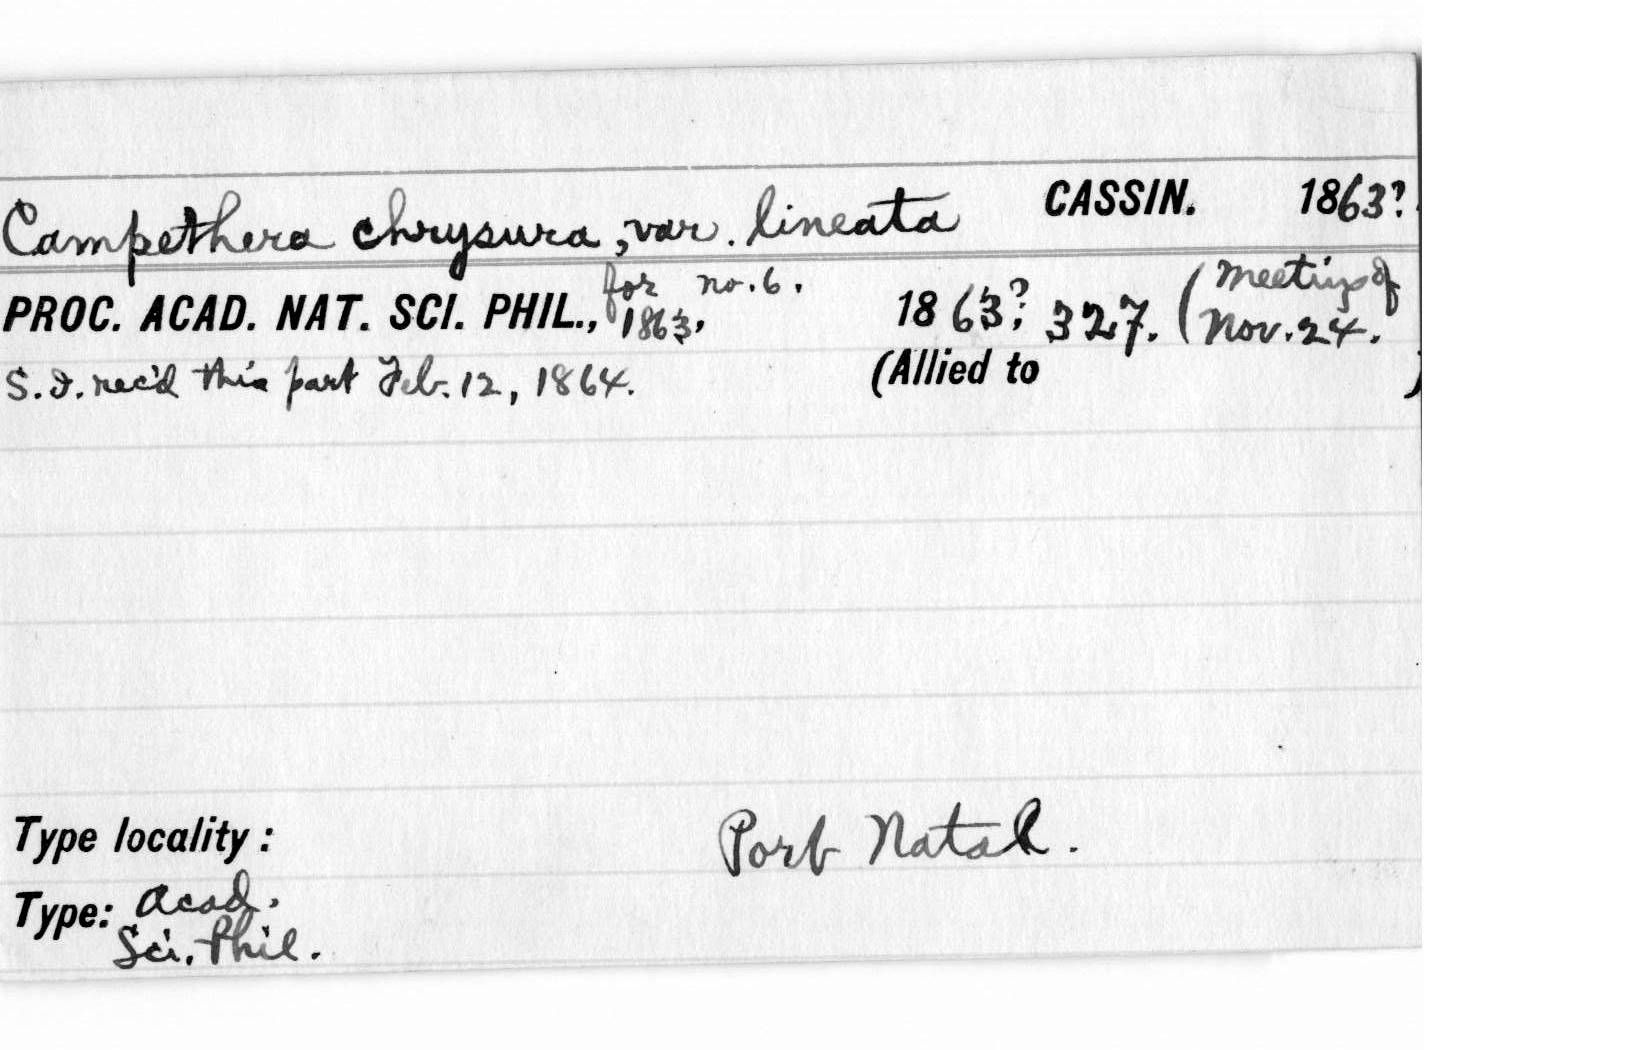 Campethera chrysura, var. lineata CASSIN. 1863?
PROC. ACAD. NAT. SCI. PHIL., for no. 6. 1863, 1863? 327. (Meeting of Nov. 24.
S.I. rec'd this part Feb. 12, 1864. (Allied to )
Type locality: Port Natal.
Type: Acad.
Sci. Phil.